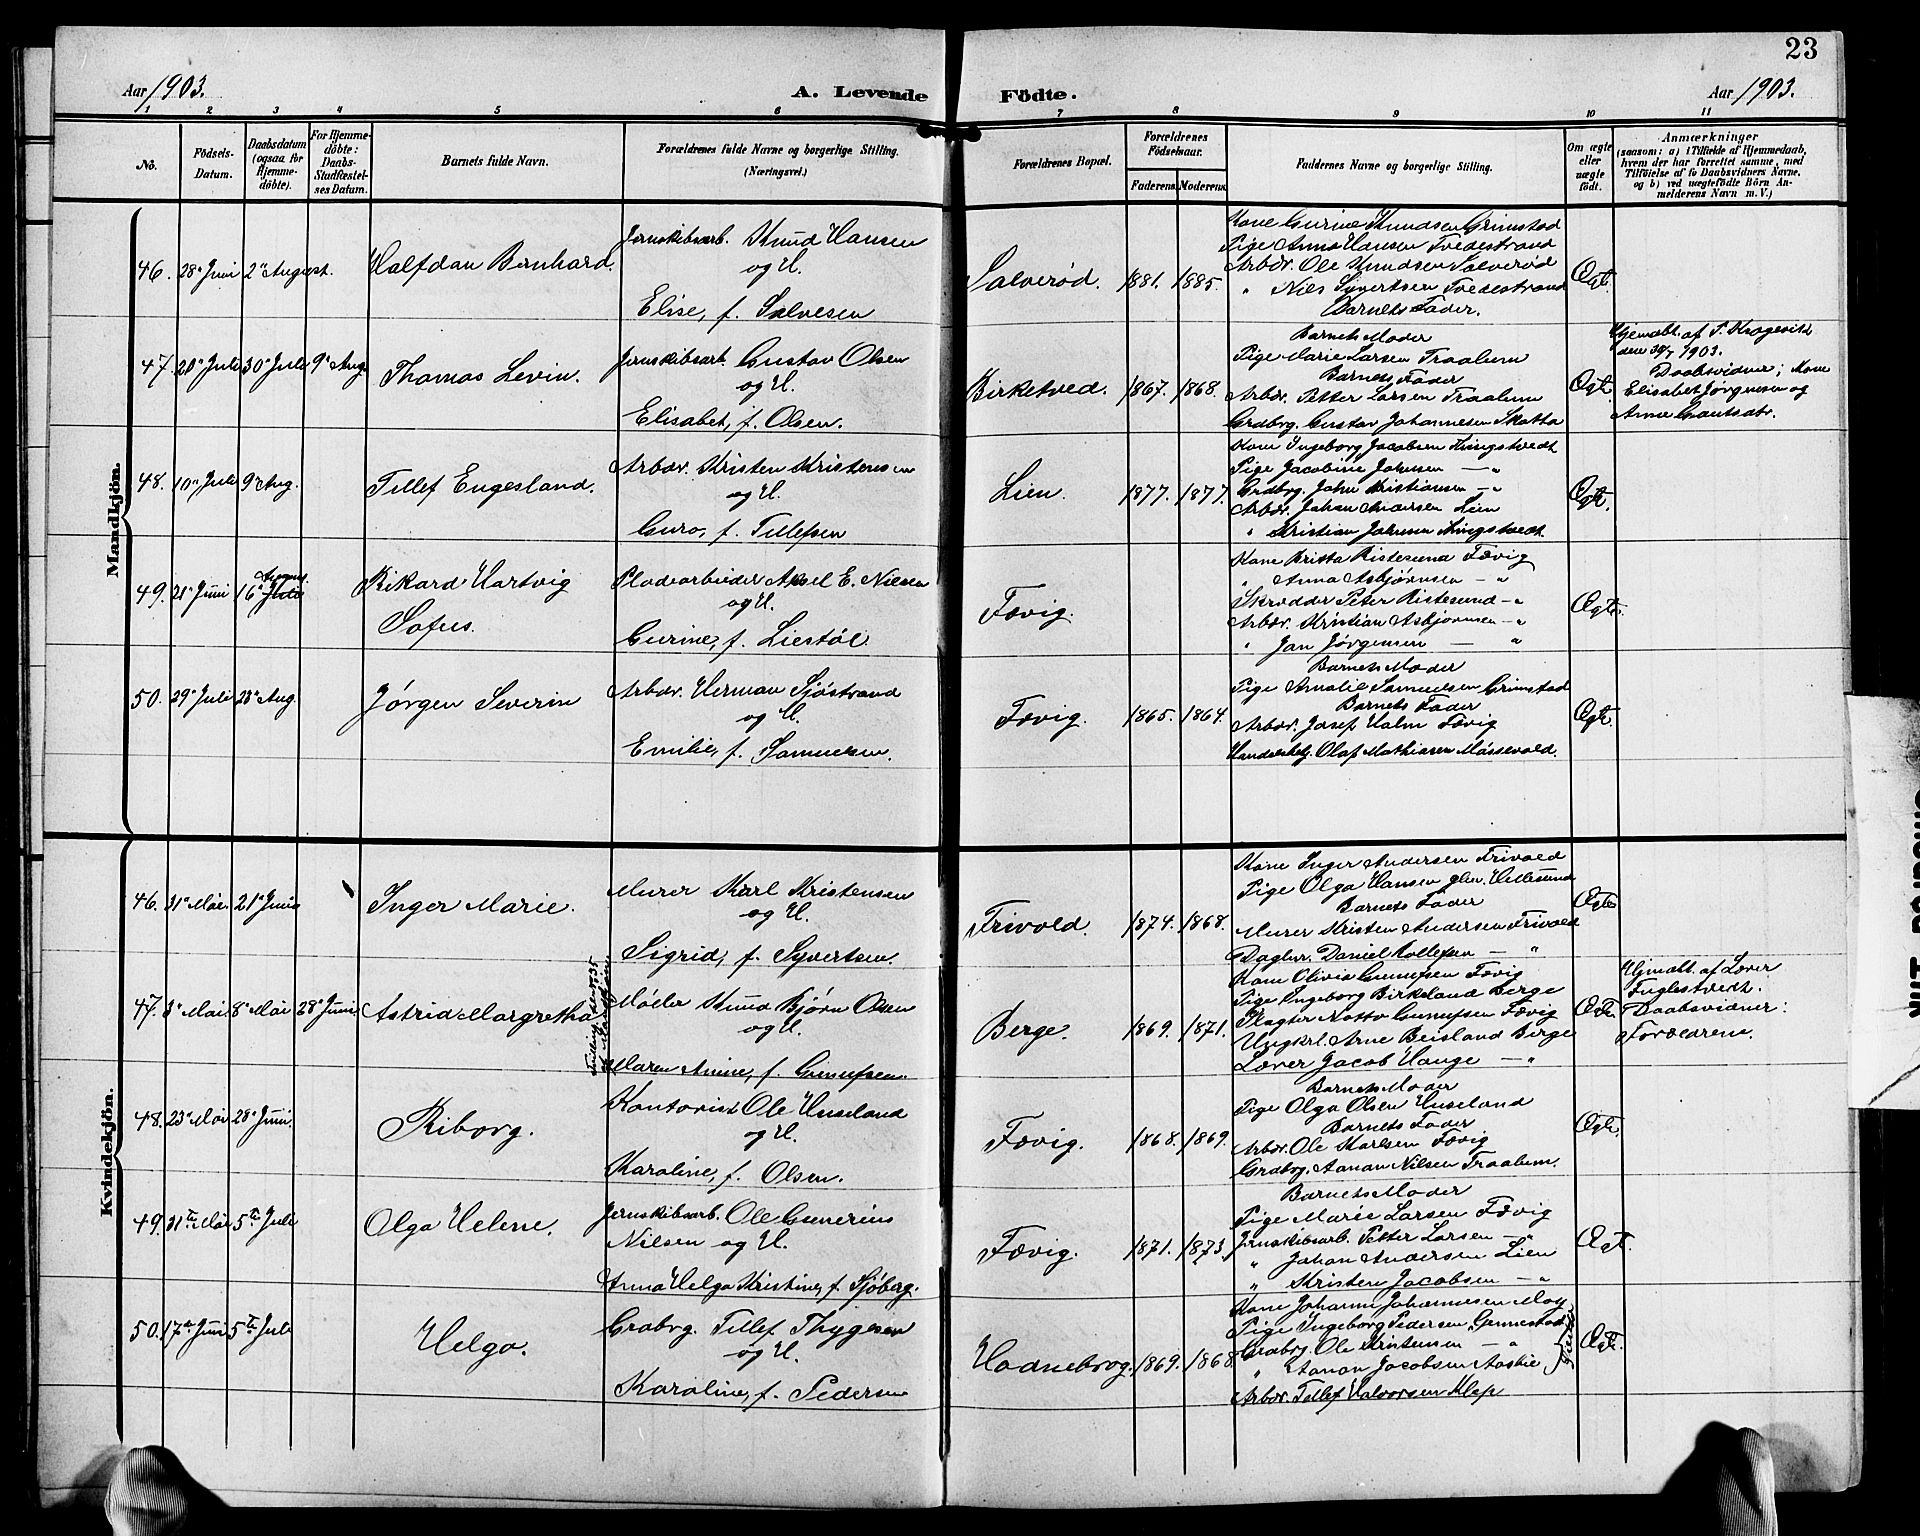 23
Aar 1903.
A. Levende Födte.
Aar 1903.
1 2 3 4 5 6 7 8 9 10 11
No.
Födsels-Datum.
Daabsdatum (ogsaa for Hjemme-döbte).
For Hjemme-döbte: Daabs-Stadfæstel-ses Datum.
Barnets fulde Navn.
Forældrenes fulde Navne og borgerlige Stilling. (Næringsvei.)
Forældrenes Bopæl.
Forældrenes Födselsaar.
Faderens. Moderens.
Faddernes Navne og borgerlige Stilling.
Om ægte eller uægte födt.
Anmærkninger
(saasom: a) i Tilfælde af Hjemmedaab, hvem der har forrettet samme, med Tilföielse af to Daabsvidners Navne, og b) ved uægtefödte Börn An-melderens Navn m. V.)
Mandkjön.
46. 28de Juni 2den August. Halfdan Bernhard. Jernskibsarb. Knud Hansen
og H.
Elise, f. Salvesen
Salverød. 1881. 1885.
Kone Gurine Knudsen Grimstad
Pige Anna Hansen Tvedestrand
Arbdr. Ole Knudsen Salverød
" Nils Syvertsen Tvedestrand
Barnets Fader.
Ægte.
47. 20de Juli 30 Juli 9de Aug. Thomas Levin. Jernskibsarb. Gustav Olsen
og H.
Elisabet, f. Olsen.
Birketved. 1867. 1868.
Barnets Moder
Pige Marie Larsen Traalum
Barnets Fader
Arbdr. Petter Larsen Traalum
Grdbrg. Gustav Johannesen Skatha
Ægte.
Hjemdbt. af
den 30/7 1903.
Daabsvidner; Kone
Elisabet Jørgensen og
Anne Gautsdtr.
48. 10de Juli 9de Aug. Tellef Engesland. Arbdr. Kristen Kristensen
og H.
Guro, f. Tellefsen
Lien. 1877. 1877.
Kone Ingeborg Jacobsen Kingstvedt
Pige Jacobine Johnsen — "
Grdbrg. John Kristiansen — "
Arbdr. Johan Andersen Lien
" Kristian Johnsen Kingstvedt
Ægte.
49. 21de Juni 16de Juli August. Rikard Hartvig
Sofus.
Pladearbeider Aksel E. Nielsen
og H.
Gurine, f. Liestøl.
Fævig.
Kone Britta Ristesund Fævig
" Anna Asbjørnsen — "
Skrædder Peter Ristesund — "
Arbdr. Kristian Asbjørnsen — "
" Jan Jørgensen — "
Ægte.
50. 29de Juli 23de Aug. Jørgen Severin Arbdr. Herman Sjøstrand
og H.
Emilie, f. Samuelsen.
Fævig. 1865. 1864.
Barnets Moder
Pige Amalie Samuelsen Grimstad
Barnets Fader
Arbdr. Josef Halm Fævig
Olaf Mathiasen Massevold.
Ægte.
Kvindekjön.
46. 31te Mai. 21de Juni Inger Marie. Murer Karl Kristensen
og H.
Sigrid, f. Syvertsen.
Frivold. 1874. 1868.
Kone Inger Andersen Frivold
Pige Olga Hansen Hellesund
Barnets Fader
Murer Kristen Andersen Frivold
Daglnr. Daniel Rollefsen "
Ægte
47. 3de Mai 8de Mai 28de Juni Astrid Margretha Møller Knud Bjørn Olsen
og H.
Maren Amine, f. Gunufsen.
Berge. 1869. 1871.
Kone Olivia Gunufsen Fævig
Pige Ingeborg Birkeland Berge
Gunufsen Fævig
Ungkrl. Arne Beisland Berge
Lærer Jacob Hauge — "
Ægte.
Hjmdbt. af Lærer
Fuglestvedt.
Daabsvidner:
Forældrene.
48. 23de Mai 28de Juni. Riborg. Kontorist Ole Huseland
og H.
Karoline, f. Olsen.
Fævig. 1868. 1869.
Barnets Moder
Pige Olga Olsen Huseland
Barnets Fader
Arbdr. Ole Karlsen Fævig
Grdbrg. Aanan Nilsen Traalum.
Ægte.
49. 31te Mai 5te Juli Olga Helene. Jernskibsarb. Ole Gunerius
Nilsen og H.
Anna Helga Kristine, f. Sjöberg.
Fævig. 1871. 1873.
Barnets Moder
Pige Marie Larsen Fævig
Jernskibsarb. Petter Larsen — "
" Johan Andersen Lien
" Kristen Jacobsen — "
Ægt.
50. 17de Juni 5te Juli Helga. Grdbrg. Tellef Thygesen
og H.
Karoline, f. Pedersen
Haanebrog. 1869. 1868.
Kone Johanne Johannesen Moy
Pige Ingeborg Pedersen Gunnestad
Grdbrg. Ole Kristensen — "
" Aanan Jacobsen Aaskie
Arbdr. Tellef Halvorsen Klep
Ægte.